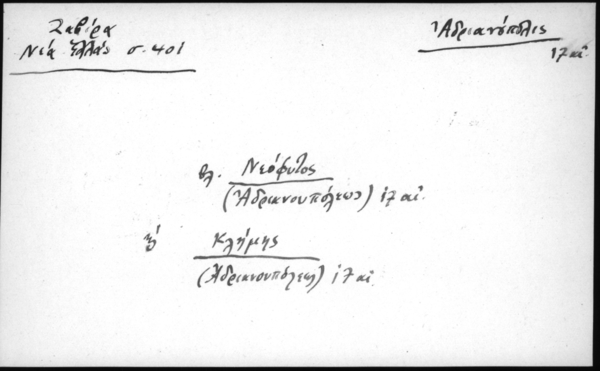 Ζαβίρα
Νέα Ἑλλάς σ. 401
Ἀδριανόπολις
17 αἰ.
βλ. Νεόφυτος
(Ἀδριανουπόλεως) 17 αἰ.
Κλήμης
(Ἀδριανουπόλεως) 17 αἰ.